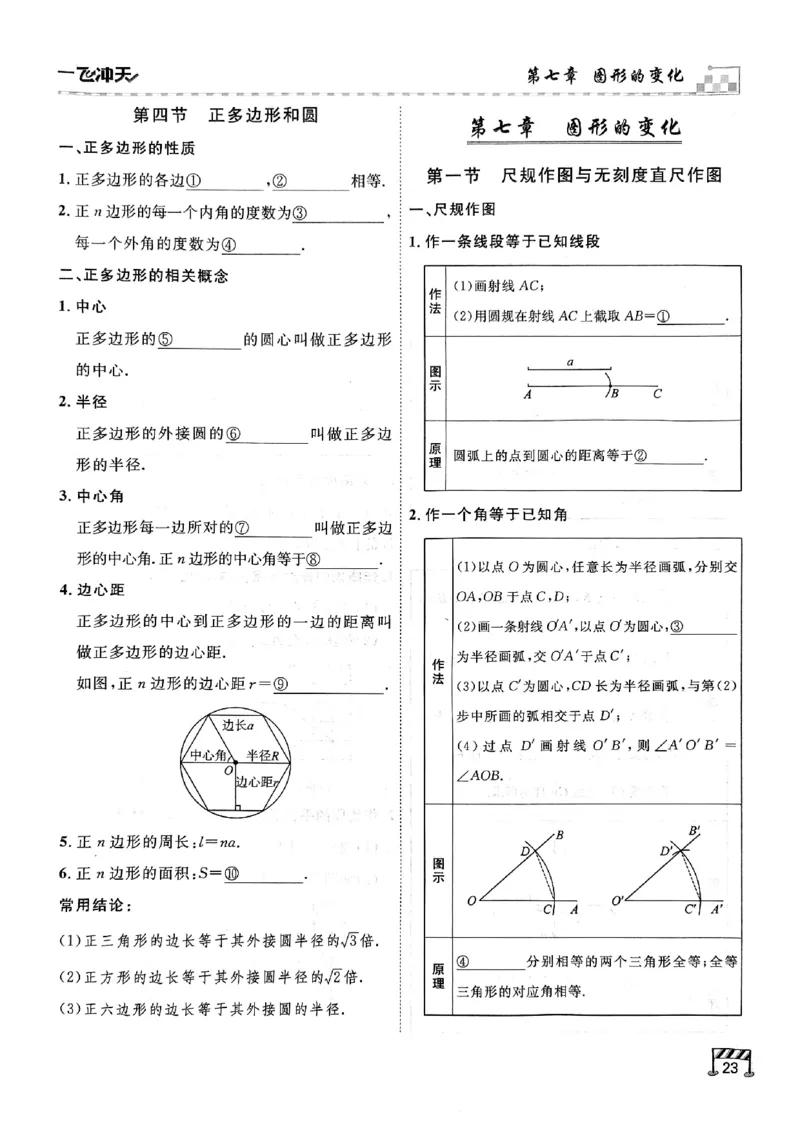 一飞冲天
第七章 图形的变化
第四节 正多边形和圆
一、正多边形的性质
1. 正多边形的各边①________,②________相等.
2. 正 n 边形的每一个内角的度数为③________,
每一个外角的度数为④________.
二、正多边形的相关概念
1. 中心
正多边形的⑤________的圆心叫做正多边形
的中心.
2. 半径
正多边形的外接圆的⑥________叫做正多边
形的半径.
3. 中心角
正多边形每一边所对的⑦________叫做正多边
形的中心角.正 n 边形的中心角等于⑧________.
4. 边心距
正多边形的中心到正多边形的一边的距离叫
做正多边形的边心距.
如图,正 n 边形的边心距 r=⑨________.
边长a
中心角 半径R
O
边心距r
5. 正 n 边形的周长:l=na.
6. 正 n 边形的面积:S=⑩________.
常用结论:
(1)正三角形的边长等于其外接圆半径的√3倍.
(2)正方形的边长等于其外接圆半径的√2倍.
(3)正六边形的边长等于其外接圆的半径.
第七章 图形的变化
第一节 尺规作图与无刻度直尺作图
一、尺规作图
1. 作一条线段等于已知线段
作法
(1)画射线 AC;
(2)用圆规在射线 AC 上截取 AB=①________.
图示
a
A B C
原理
圆弧上的点到圆心的距离等于②________.
2. 作一个角等于已知角
作法
(1)以点 O 为圆心,任意长为半径画弧,分别交
OA,OB 于点 C,D;
(2)画一条射线 O′A′,以点 O′为圆心,③________
为半径画弧,交 O′A′于点 C′;
(3)以点 C′为圆心,CD 长为半径画弧,与第(2)
步中所画的弧相交于点 D′;
(4)过点 D′画射线 O′B′,则∠A′O′B′=
∠AOB.
图示
B B′
D D′
O C A O′ C′ A′
原理
④________分别相等的两个三角形全等;全等
三角形的对应角相等.
23